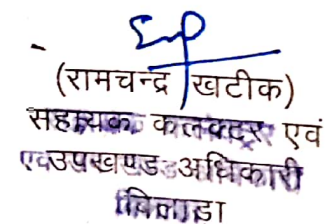 (रामचन्द्र खटीक)
सहायक कलक्टर एवं
उपखण्ड अधिकारी
बिलाड़ा